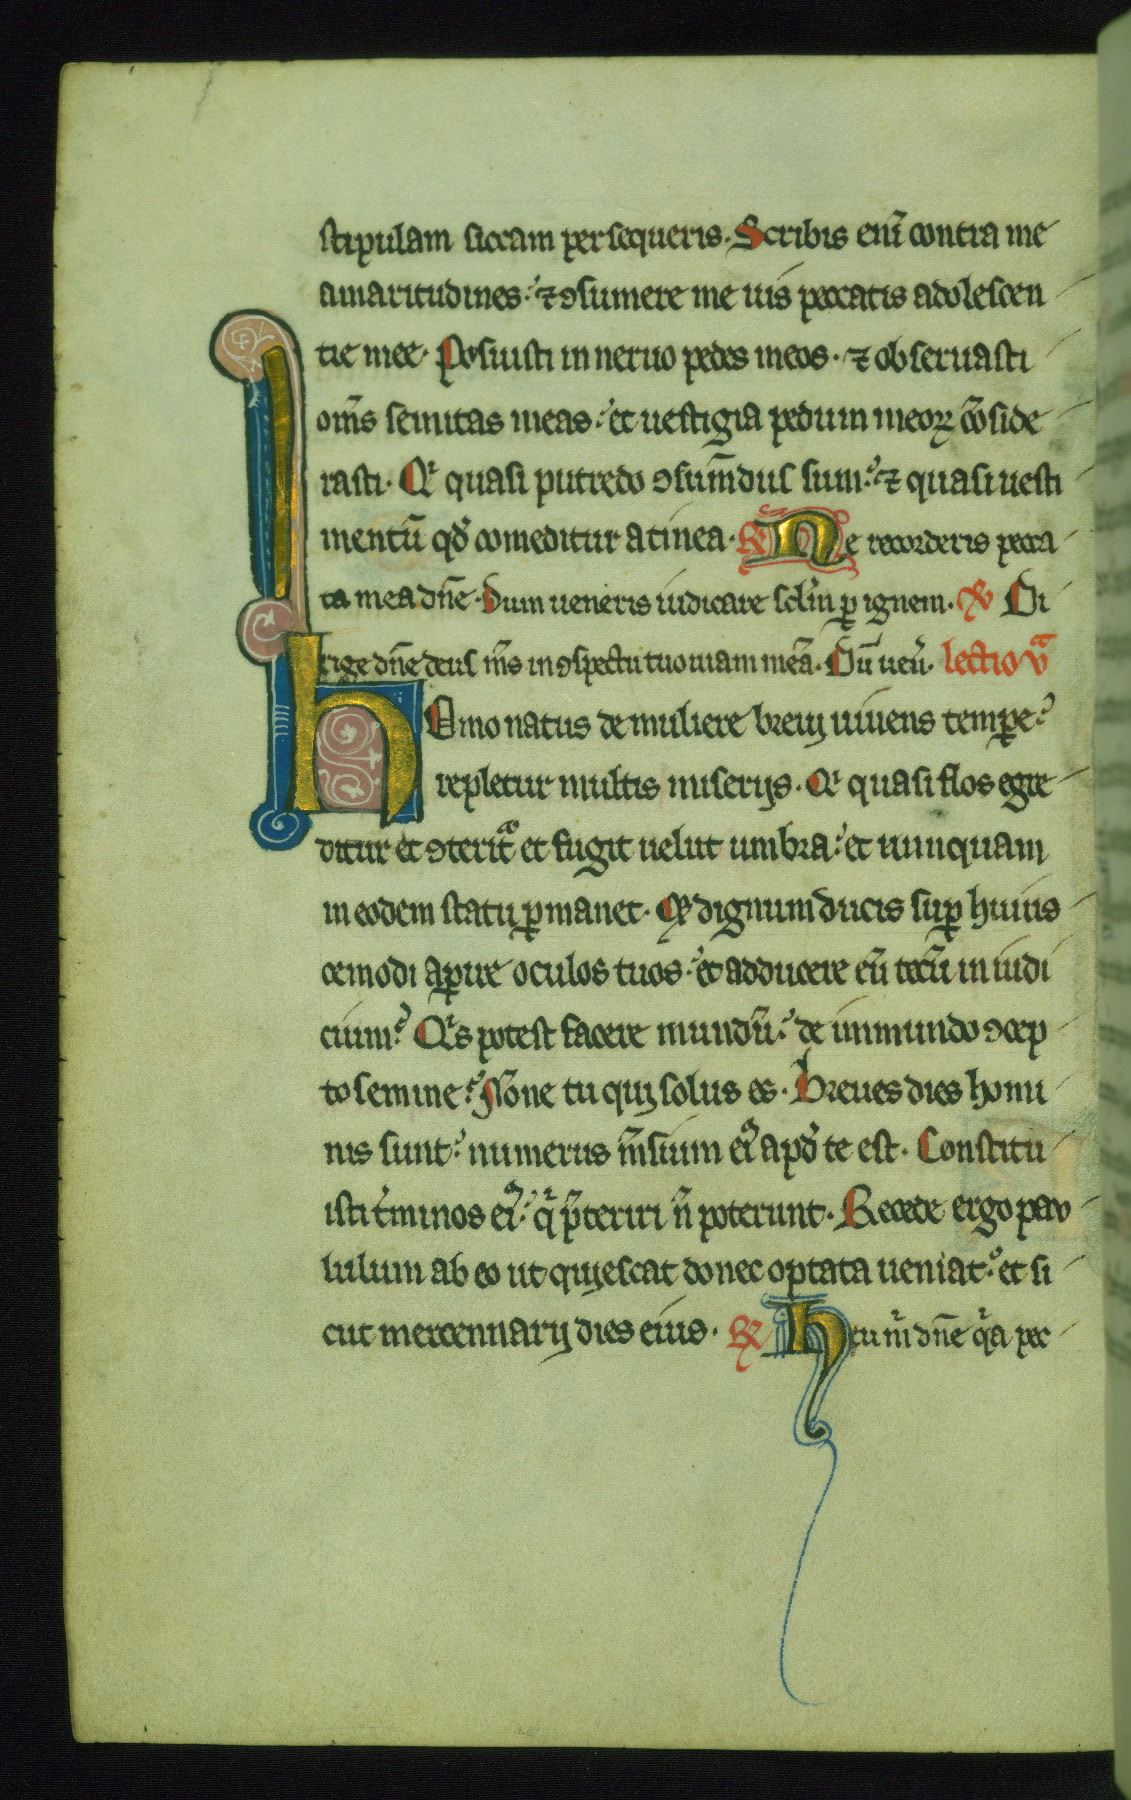 stipulam siccam persequeris. Scribis eni̅ contra me
amaritudines: ⁊ ꝯsumere me uis peccatis adolescen
tie mee. Posuisti in neruo pedes meos. ⁊ obseruasti
om̅s semitas meas: et uestigia pedum meoꝝ co̅side
rasti. Qͥ quasi putredo ꝯsum̅dus sum: ⁊ quasi uesti
mentu̅ qd̅ comeditur a tinea. ℞ Ne recorderis pecca
ta mea dn̅e. Dum ueneris iudicare sclm̅ ꝑ ignem. ℣ Di
rige dn̅e deus m̅s in ꝯspectu tuo uiam mea̅. Du̅ uen̅. lectio vͣ
HOmo natus de muliere breui uiuens tempꝑe:
repletur multis miserijs. Qͥ quasi flos egre
ditur et ꝯteritͣ et fugit uelut umbra: et nunquam
in eodem statu ꝑmanet. Et dignum ducis suꝑ huius
cemodi aꝑire oculos tuos: et adducere eu̅ tecu̅ in iudi
cium? Qͥs potest facere mundu̅: de immundo ꝯcep
to semine? No̅ne tu qui solus es. Breues dies homi
nis sunt: numerus m̅sium eiꝰ apd̅ te est. Constitu
isti t̅minos eiꝰ: qͥ p̅teriri n̅ poterunt. Recede ergo pau
lulum ab eo ut quiescat donec optata ueniat: et si
cut mercennarij dies eius. ℞ Heu m̅ dn̅e qͥa pec